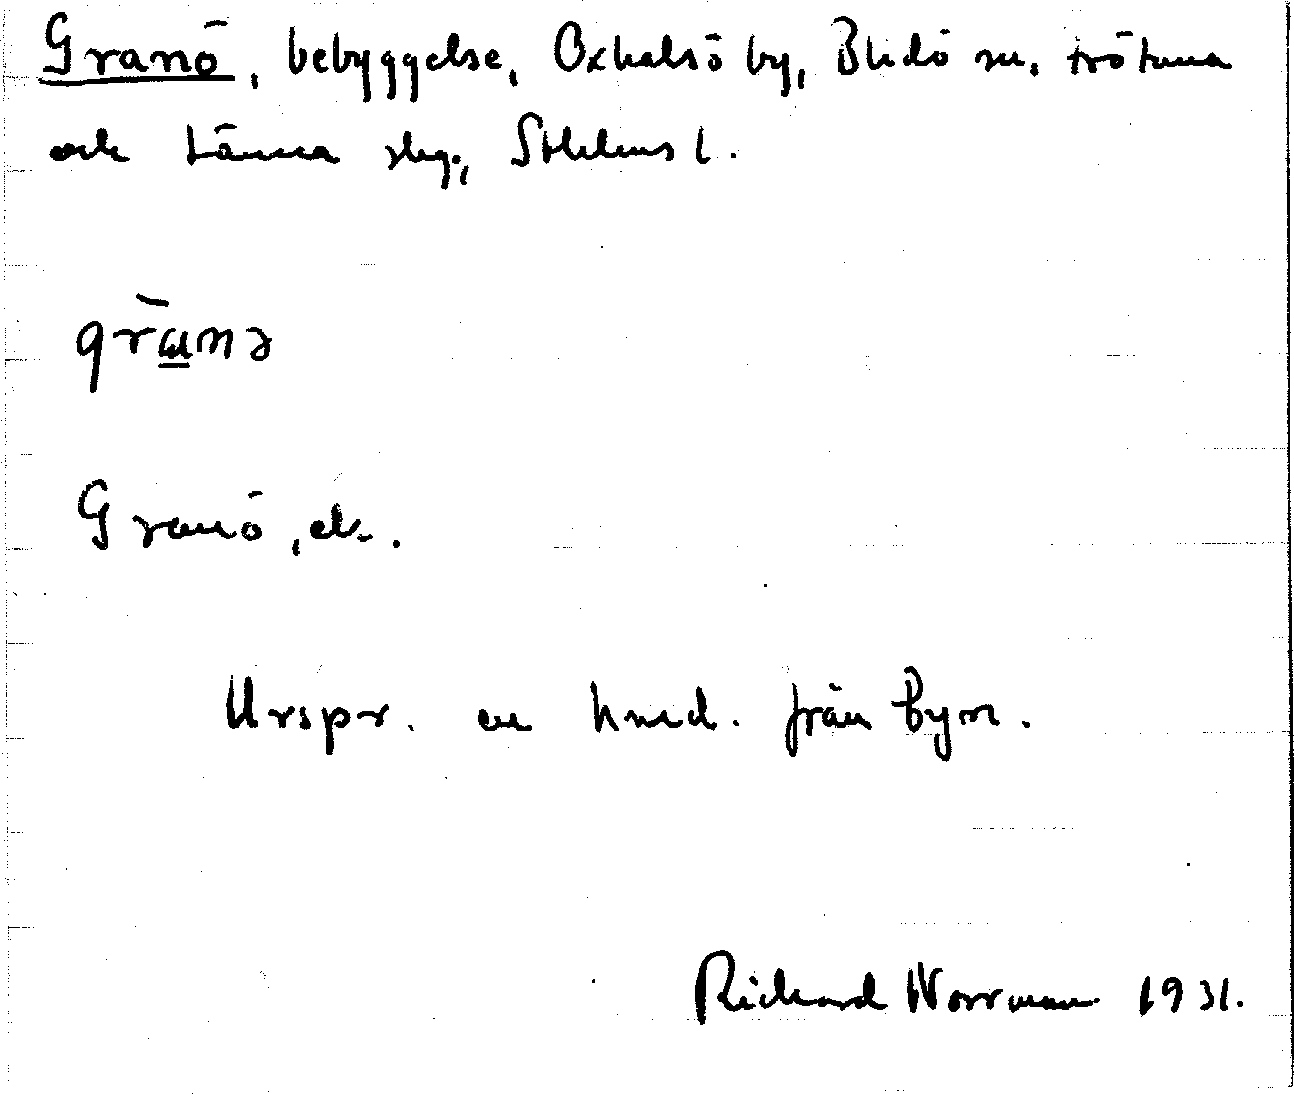 Granö, bebyggelse, Oxhalsö by, Blidö sn. Frötuna
och Länna skg., Sthlms l.
gràna
Granö, ek.
Urspr. en hmd. från byn.
Richard Norrman 1931.